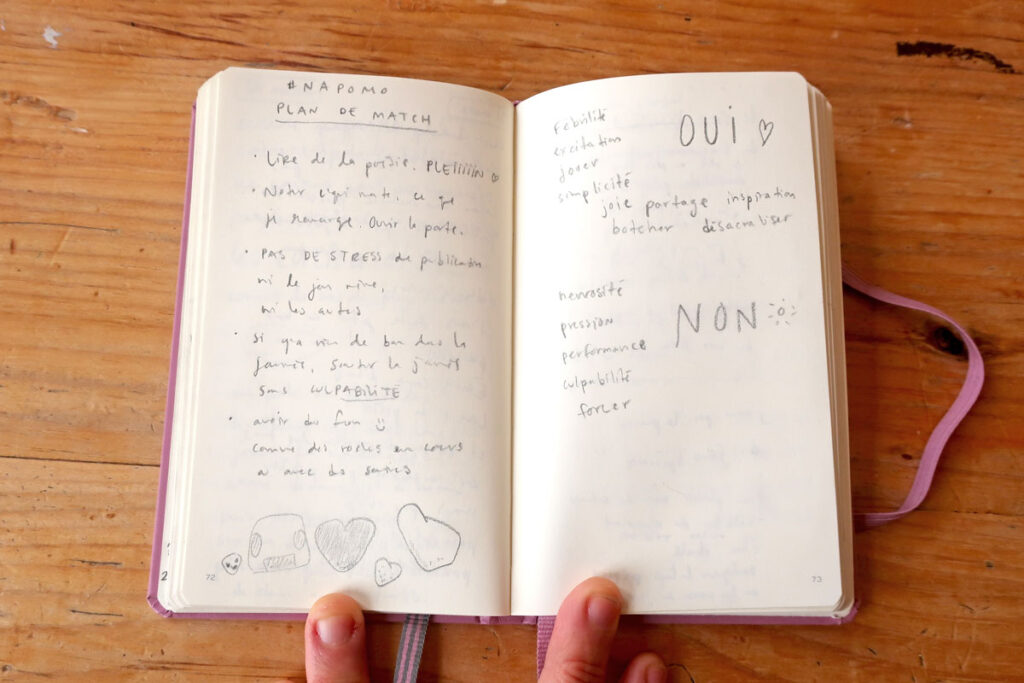 #NAPOMO
PLAN DE MATCH
• Lire de la poésie. PLEIIIIIN ♡
• Noter c'qui naît, ce que
je remarque. Ouvrir la porte.
• PAS DE STRESS de publication
ni de jam mine,
ni les autres
• Si y'a rien de bon dans la
journée, sauter la journée
sans CULPABILITÉ
• avoir du fun
comme des roches en cœurs
ou avec des sourires
72
OUI ♡
Fébrilité
excitation
jouer
simplicité
joie partage inspiration
botcher désacraliser
NON
nervosité
pression
performance
culpabilité
forcer
73